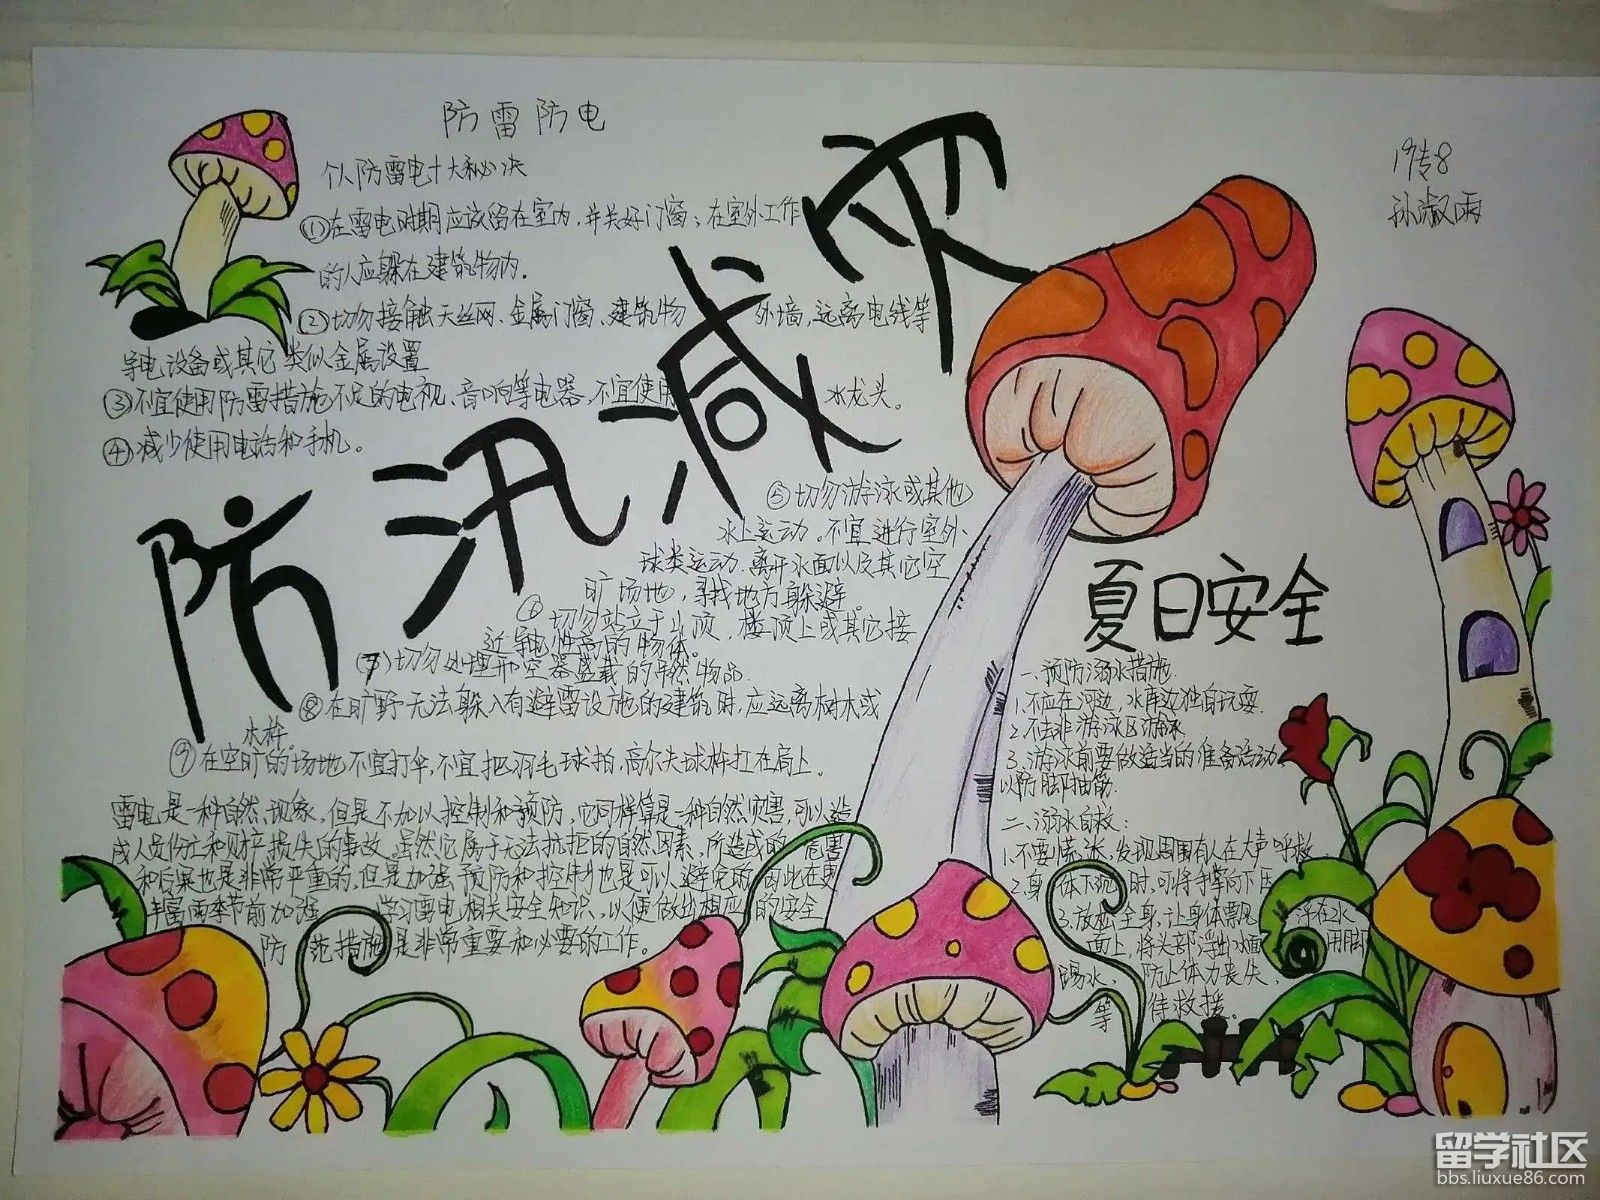 防雷防电
个人防雷电十大秘决
①在雷电时期应该留在室内,并关好门窗;在室外工作
的人应躲在建筑物内.
②切勿接触天丝网、金属门窗、建筑物外墙,远离电线等
导电设备或其它类似金属设置
③不宜使用防雷措施不足的电视、音响等电器,不宜使用水龙头。
④减少使用电话和手机。
防汛减灾
⑤切勿游泳或其他
水上运动。不宜进行室外
球类运动.离开水面以及其它空
旷场地,寻找地方躲避。
⑥切勿站立于山顶、楼顶上或其它接
近导电性高的物体。
⑦切勿处理开空器盛载的易燃物品.
⑧在旷野无法躲入有避雷设施的建筑时,应远离树木或
水桙。
⑨在空旷的场地不宜打伞,不宜把羽毛球拍,高尔夫球桙扛在肩上.
雷电是一种自然现象,但是不加以控制和预防,它同样算是一种自然灾害,可以造
成人员伤亡和财产损失的事故.虽然它属于无法抗拒的自然因素,所造成的危害
和后果也是非常严重的,但是加强预防和控制也是可以避免
丰富雨季节前加强学习雷电相关安全知识,以便做出相应的安全
防范措施是非常重要和必要的工作。
19专8
孙淑雨
夏日安全
一.预防溺水措施.
1.不应在河边、水库边独自玩耍.
2.不去非游泳区游泳
3.游泳前要做适当的准备活动
以防脚抽筋.
二.溺水自救:
1.不要慌张,发现周围有人在大声呼救
2.身体下沉时,可将手掌向下压
3.放松全身,让身体飘浮在水
面上,将头部浮出水面用脚
踢水、防止体力丧失,
等待救援。
留学社区
bbs.liuxue86.com